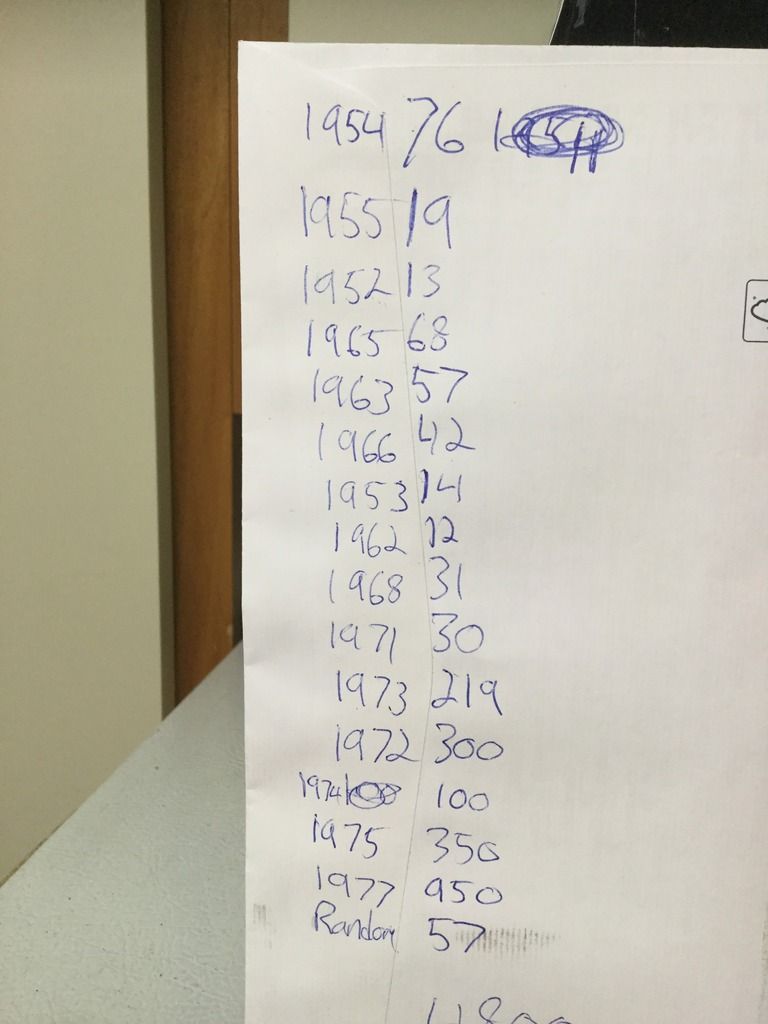 1954 76
1955 19
1952 13
1965 68
1963 57
1966 42
1953 14
1962 12
1968 31
1971 30
1973 219
1972 300
1974 100
1975 350
1977 950
Random 57